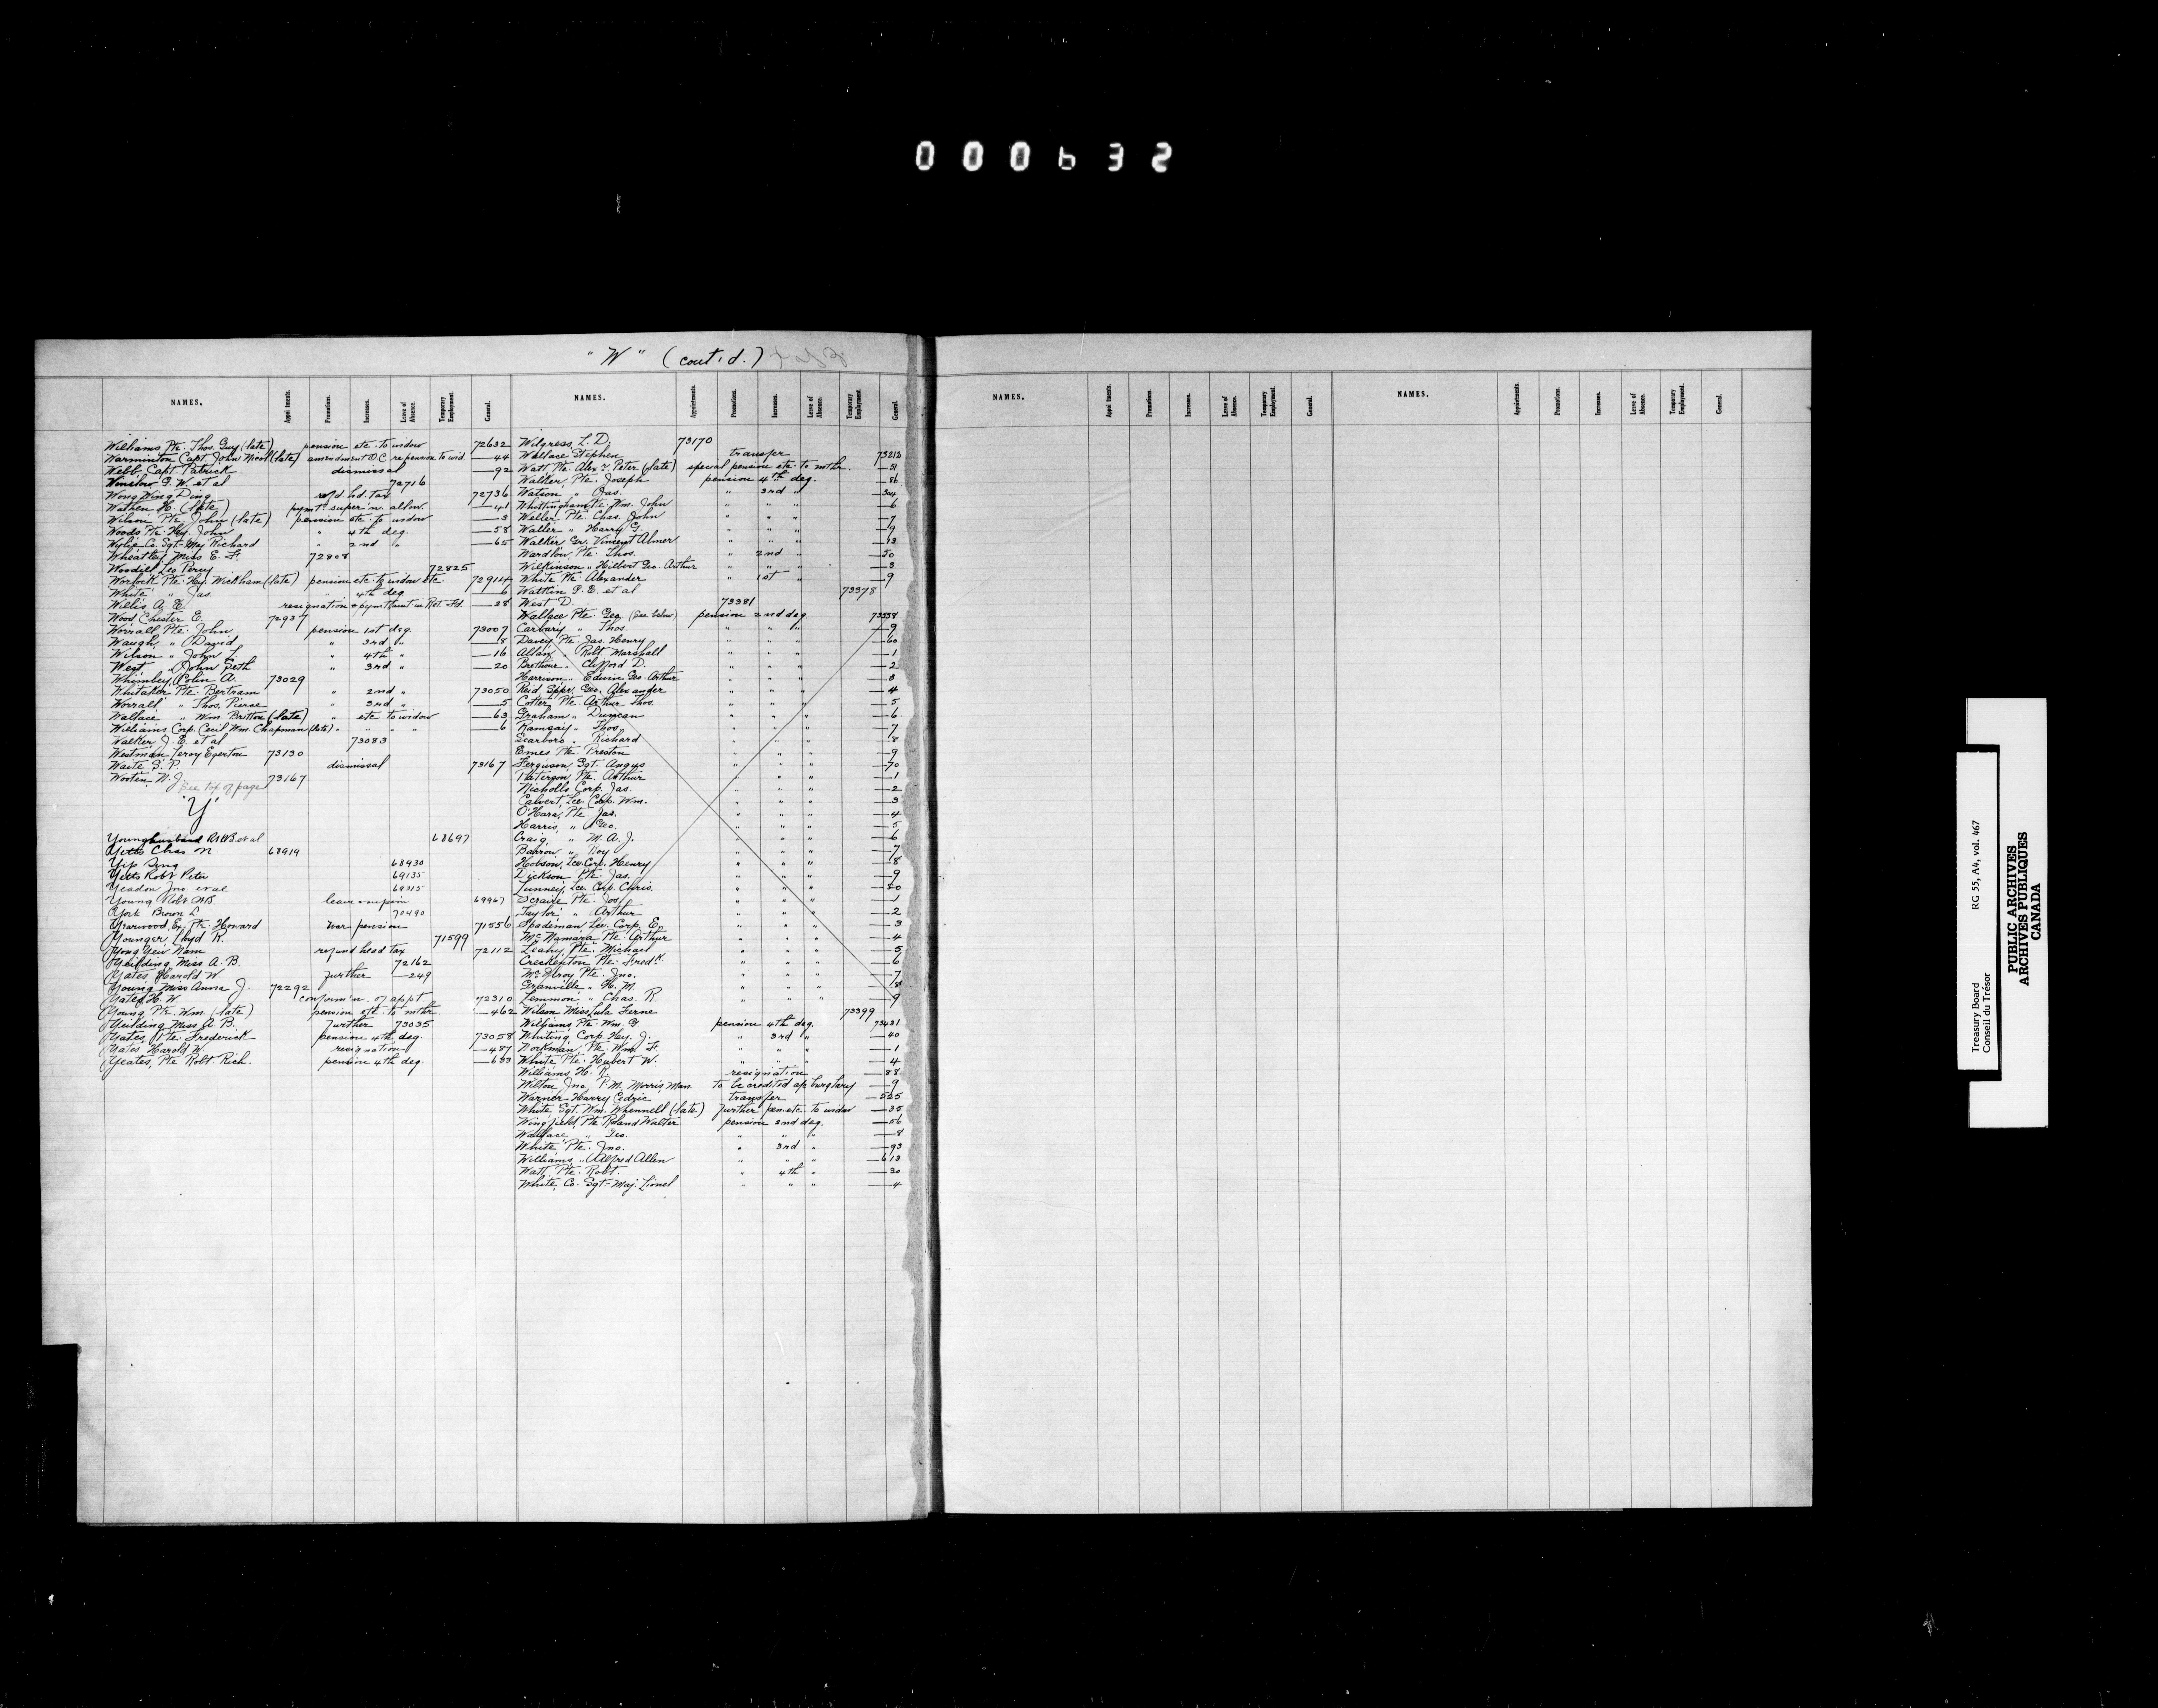 000632
"W" (cont'd.)
NAMES. Appointments. Promotions. Increases. Leave of Absence. Temporary Employment. General.
Williams, Pte. Thos. Guy (late) pension etc. to widow 72632
Warminton Capt. John Nicol (late) amendment O.C. re pension to wid. —44
Webb, Capt. Patrick dismissal —92
Winslow, G. W. et al 72716
Wong Wing Ding refd. hd. tax 72736
Wathen H. (late) pymt. super'n. allow. —41
Wilson Pte. John (late) pension etc. to widow —3
Woods Pte. Hy. John " 4th deg. —58
Wylie Co. Sgt-Maj Richard " 2nd " —65
Wheatley Miss E. F. 72808
Woodill Leo Percy 72825
Worlock, Pte. Hy. Wickham (late) pension etc. to widow etc. 72914
White " Jas. " 4th deg —6
Willis, A. E. resignation & pymt amt in Ret. Fd. —28
Wood, Chester E. 72937
Worrall Pte. John pension 1st deg. 73007
Waugh, " David " 3rd " —8
Wilson, " John L. " 4th " —16
West " John Seth " 3rd " —20
Whimbey, Colin A. 73029
Whitaker, Pte. Bertram " 2nd " 73050
Worrall " Thos. Pierce " 3rd " —5
Wallace " Wm. Britton (late) " etc to widow —63
Williams Corp. Cecil Wm. Chapman (late) " " " " —6
Walker J. E. et al 73083
Westman Leroy Egerton 73130
Waite S. P. dismissal 73167
Wooten, N. J. 73167
See top of page
"Y"
Younghusband et al 68697
Yetts Chas N. 68919
Yip Sing 68930
Yetts Robt Peter 69135
Yeadon Jno et al 69315
Young Robt leave 69967
York Brown L. 70490
Yarwood, Ex. Pte. Howard war pension 71556
Younger, Lloyd R. 71599
Yong Yew Nam refund head tax 72112
Yeilding, Miss A. B. 72162
Yates, Harold W. further —249
Young Miss Anna J. 72292
Yates H. W. conform'n. of appt 72310
Young, Pte. Wm. (late) pension etc. to mthr. —462
Yeilding Miss A. B. further 73035
Yates, Pte. Frederick pension 4th deg. 73058
Yates Harold W. resignation —487
Yeates, Pte Robt Rich. pension 4th deg. —633
NAMES. Appointments. Promotions. Increases. Leave of Absence. Temporary Employment. General.
Wilgress, L. D. 73170
Wallace Stephen transfer 73212
Watt Pte. Alexr. Peter (late) special pension etc. to mthr. —51
Walker, Pte. Joseph pension 4th deg. —86
Watson " Jas. " 3rd " —304
Whittingham, Pte. Wm. John " " " —6
Weller Pte. Chas. John " " " —7
Waller " Harry G. " " " —9
Walker Gr. Vincent Almer " " " —13
Wardlow, Pte. Thos. " 2nd " —50
Wilkinson " Hilbert Geo. Arthur " " " —3
White Pte Alexander " 1st " —9
Wattlin G. E. et al 73378
West D. 73381
Wallace Pte. Geo. (See below) pension 2nd deg. 73358
Carbary " Thos. " " " —9
Davey, Pte. Jas. Henry " " " —60
Allan " Robt Marshall " " " —1
Brethour " Clifford D. " " " —2
Harrison " Edwin Geo. Arthur " " " —3
Reid Sppr. Geo. Alexander " " " —4
Cotter, Pte. Arthur Thos. " " " —5
Graham " Duncan " " " —6
Ramsay " Thos. " " " —7
Scarboro " Richard " " " —8
Emes Pte. Preston " " " —9
Ferguson, Sgt. Angus " " " —70
Paterson, Pte. Arthur " " " —1
Nicholls Corp. Jas. " " " —2
Calvert, Lce. Corp. Wm. " " " —3
O'Hara, Pte. Jas. " " " —4
Harris, " Geo. " " " —5
Craig, " M. A. J. " " " —6
Barrow " Roy " " " —7
Hobson, Lce. Corp. Henry " " " —8
Dickson Pte. Jas. " " " —9
Lunney, Lce. Corp. Chris. " " " —80
Pte. Jos. " " " —1
Taylor " Arthur " " " —2
Spademan Lce. Corp. E. " " " —3
McNamara Pte. Arthur " " " —4
Leahy, Pte. Michael " " " —5
Creckenton Pte. Fredk. " " " —6
McIlroy Pte. Jno. " " " —7
Granville " H. M. " " " —8
Lemmon, " Chas. R. " " " —9
Wilson Miss Lula Ferne 73399
Williams, Pte. Wm. G. pension 4th deg. 73431
Whiting, Corp. Hy. J. " 3rd " —40
Workman, Pte. Wm. F. " " " —1
White Pte. Hubert W. " " " —4
Williams, H. R. resignation —88
Wilton, Jno, P.M. Morris Man. to be credited a/c burglary —9
Warner Harry Cedric transfer —525
White Sgt. Wm. Whennell (late) further pen. etc. to widow —35
Wingfield, Pte. Roland Walter pension 2nd deg. —56
Wallace " Geo. " " " —8
White Pte. Jno. " 3rd " —93
Williams " Alfred Allen " " " —613
Watt, Pte. Robt. " 4th " —30
White, Co. Sgt-Maj. Lionel " " " —4
NAMES. Appointments. Promotions. Increases. Leave of Absence. Temporary Employment. General.
NAMES. Appointments. Promotions. Increases. Leave of Absence. Temporary Employment. General.
Treasury Board RG 55, A4, vol. 467
Conseil du Trésor
PUBLIC ARCHIVES
ARCHIVES PUBLIQUES
CANADA